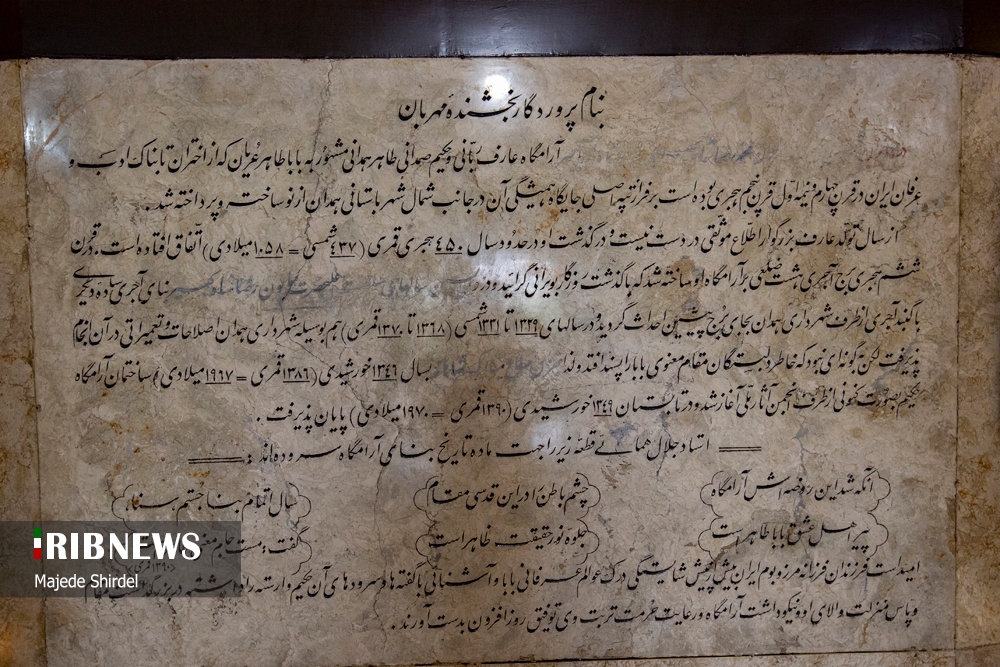 بنام پروردگار بخشندهٔ مهربان
آرامگاه عارف ربّانی و حکیم صمدانی طاهر همدانی مشهور به باباطاهر عریان که از اختران تابناک ادب و
عرفان ایران در قرن چهارم و نیمه اول قرن پنجم هجری بوده است بر فراز تپه اصلی جایگاه همیشگی آن در جانب شمال شهر باستانی همدان از نو ساخته و پرداخته شد .
از سال تولّد عارف بزرگوار اطلاع موثقی در دست نیست و درگذشت او در حدود سال ۴۵۰ هجری قمری (۴۳۷ شمسی = ۱۰۵۸ میلادی) اتّفاق افتاده است . در قرن
ششم هجری برج آجری هشت ضلعی بر آرامگاه او ساخته شد که با گذشت روزگار بویرانی گرائید و در بنای آجری ساده دیگری
با گنبد آجری از طرف شهرداری همدان بجای برج پیشین احداث گردید و در سالهای ۱۳۲۹ تا ۱۳۳۱ شمسی (۱۳۶۸ تا ۱۳۷۰ قمری) هم بوسیله شهرداری همدان اصلاحات و تعمیراتی در آن انجام
پذیرفت لکن به گونه‌ای نبود که خاطر دلبستگان مقام معنوی بابا را پسند افتد ولذا بسال ۱۳۴۶ خورشیدی (۱۳۸۶ قمری = ۱۹۶۷ میلادی) ساختمان آرامگاه
حکیم بصورت کنونی از طرف انجمن آثار ملّی آغاز شد و در تابستان ۱۳۴۹ خورشیدی (۱۳۹۰ قمری = ۱۹۷۰ میلادی) پایان پذیرفت .
استاد جلال همائی قطعهٔ زیر را جهت ماده تاریخ بنای آرامگاه سروده‌اند :
آنکه شد این روضه اش آرامگاه چشم باطن را در این قدسی مقام سال اتمام بنا جستم سنا
پیر اهل عشق باباطاهر است جلوه نور حقیقت ظاهر است گفت: مست جام
(۱۳۹۰ قمری)
امید است فرزندان فرزانه مرز و بوم ایران بیش از پیش شایستگی درک عوالم عرفانی بابا و آشنائی با گفته‌ها و سروده‌های آن حکیم وارسته را داشته
و پاس منزلت والای او و نیکوداشت آرامگاه و رعایت حرمت تربت وی توفیق روزافزون بدست آورند .
IRIBNEWS
Majede Shirdel